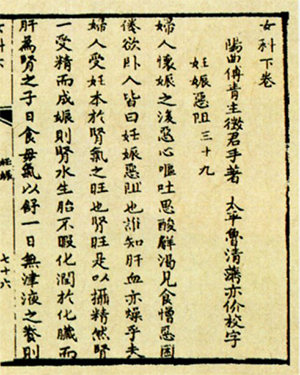 女科下卷
陽曲傅青主徵君手著 太平魯清藩亦价校字
妊娠惡阻三十九
婦人懷娠之後惡心嘔吐思酸解渴見食憎惡困
倦欲卧人皆曰妊娠惡阻也誰知肝血亦燥乎夫
婦人受妊本於腎氣之旺也腎旺是以攝精然腎
一受精而成娠則腎水生胎不暇化潤於化臟而
肝為腎之子日食毋氣以舒一日無津液之養則
妊娠
七十六